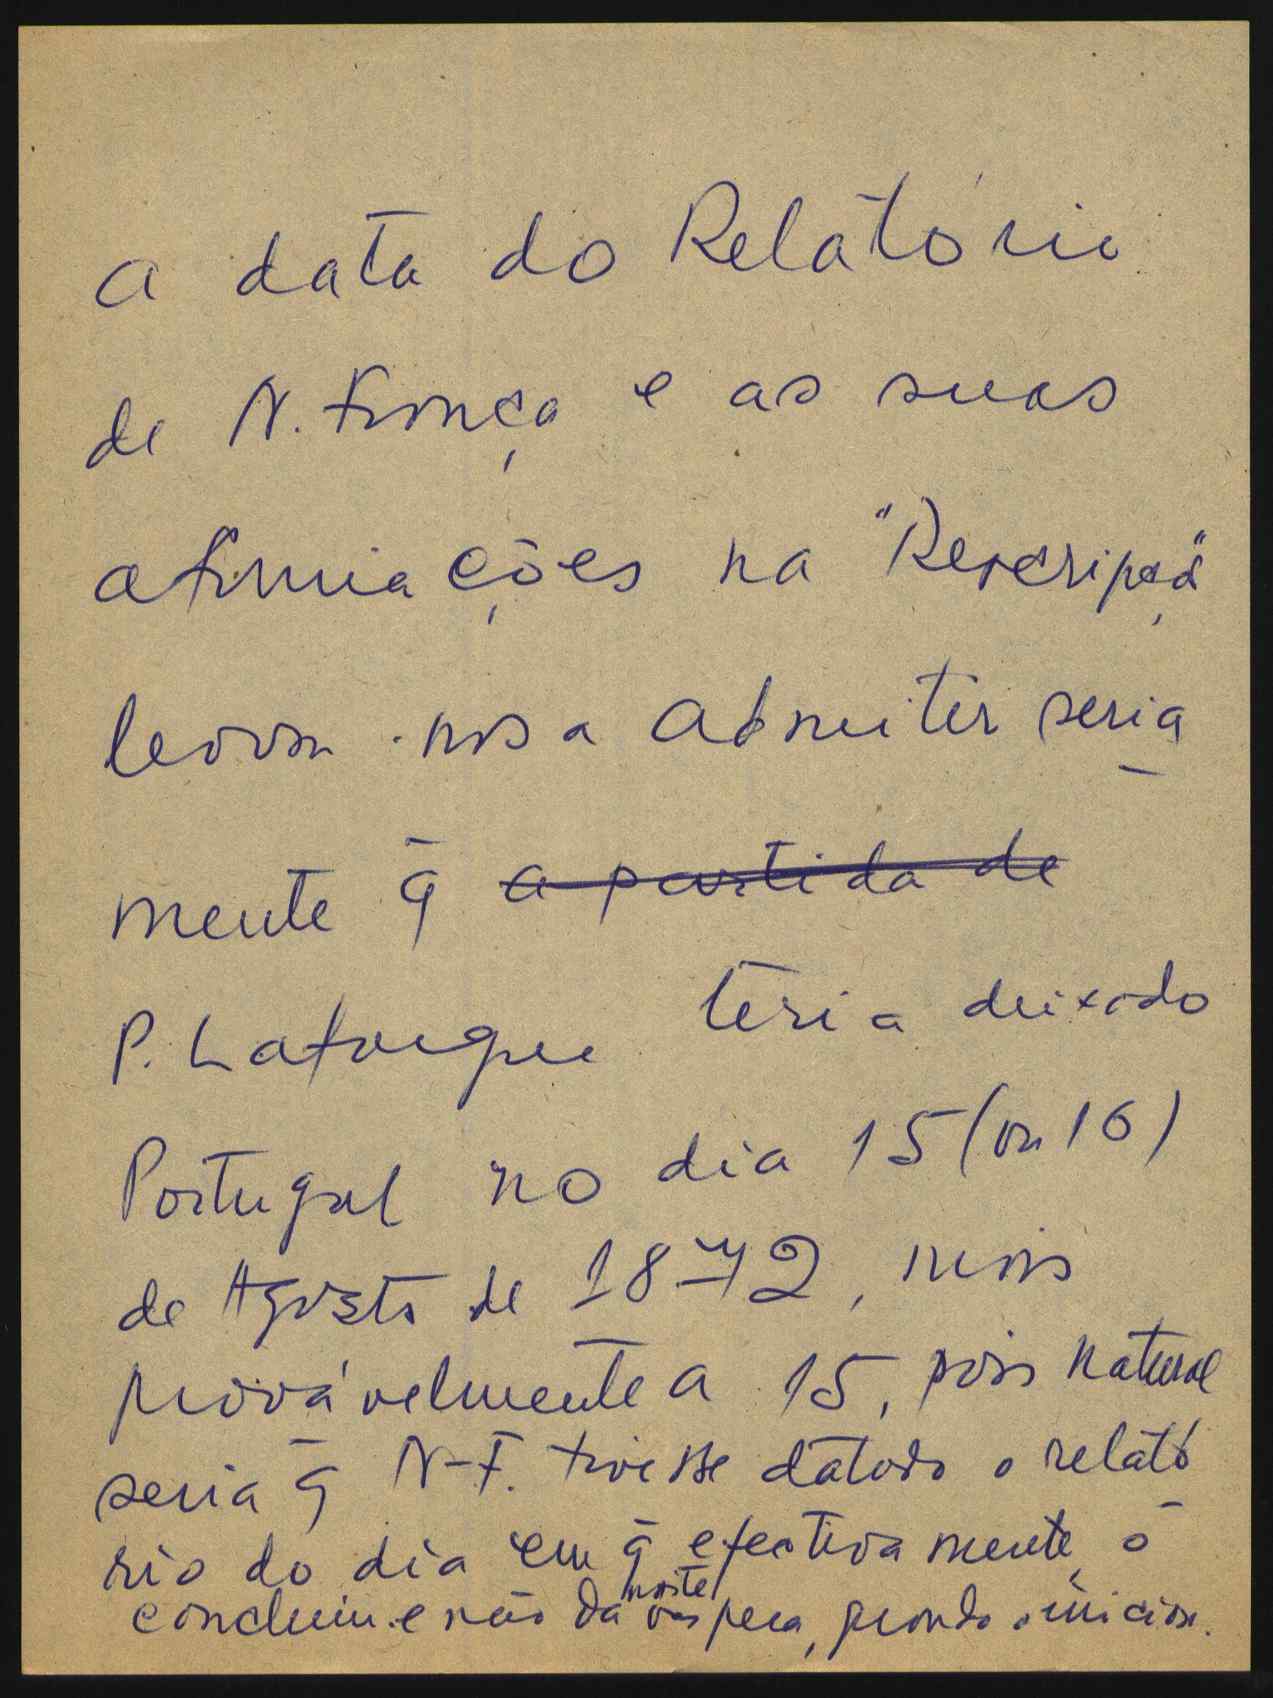 A data do Relatório
de N. França e as suas
afirmações na "Descripçã"
levam-nos a admitir seria
mente q̄ a partida de
P. Lafargue teria deixado
Portugal no dia 15 (ou 16)
de Agosto de 1872, mais
provávelmente a 15, pois natural
seria q̄ N-F. tivesse datado o relató
rio do dia em q̄ efectivamente o
concluiu e não da noite
véspera, quando o iniciou.